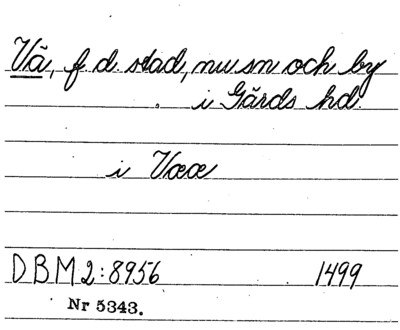 Vä, f d stad, nu sn och by
i Gärds hd
i Vææ
DBM 2:8956 1499
Nr 5343.